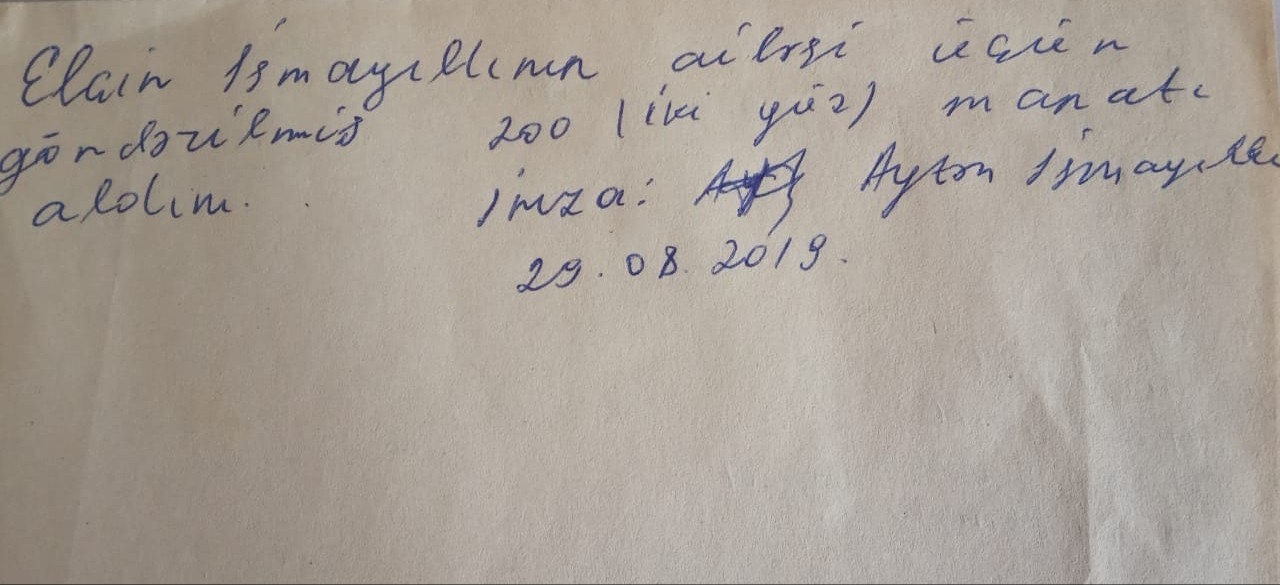 Elçin İsmayıllının ailəsi üçün
göndərilmiş 200 (iki yüz) manatı
aldım. İmza: Aytən İsmayıllı
29.08.2019.